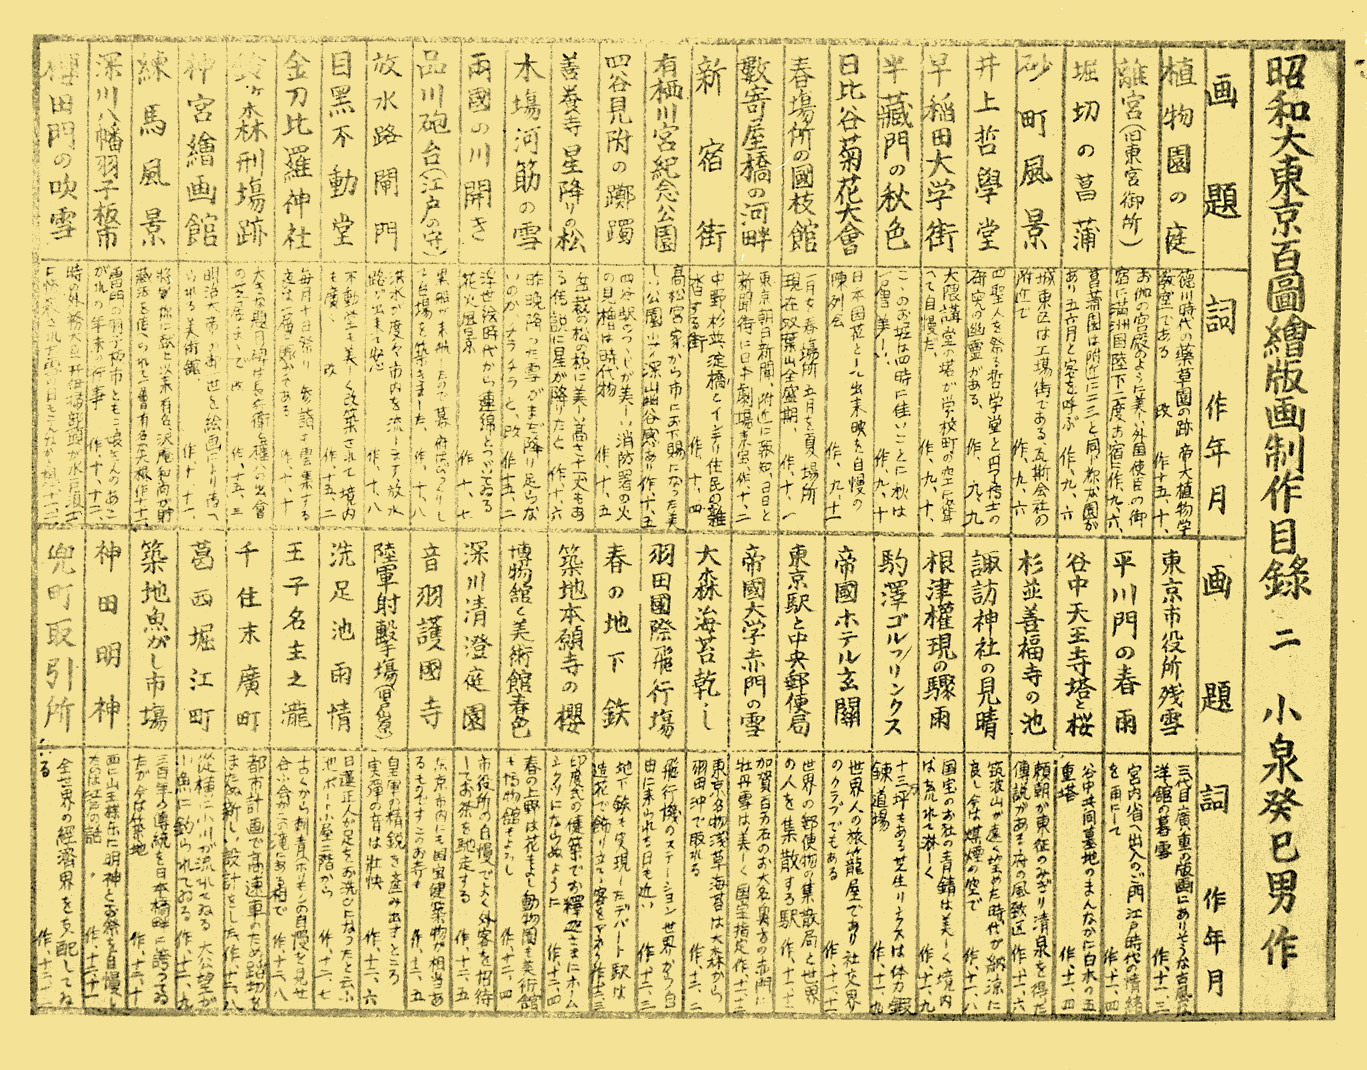 昭和大東京百圖繪版画制作目錄 二 小泉癸巳男作
画題
詞 作年月
植物園の庭
徳川時代の薬草園の跡 帝大植物学
教室である 改 作十五、十、
離宮(旧東宮御所)
お伽の宮殿のように美しい外国使臣の御
宿に満洲国陛下二度お宿に作、九、六、
堀切の菖蒲
菖蒲園は附近に二三と同じ称な園が
あり五六月と客を呼ぶ 作、九、六
砂町風景
城東区は工場街である、瓦斯会社の
附近で 作、九、六
井上哲學堂
四聖人を祭る哲学堂と円了博士の
研究の幽霊がある、 作、九、九
早稲田大学街
大隈講堂の塔が学校町の空に聳
へて自慢だ。 作、九、十、
半藏門の秋色
このお堀は四時に佳いことに秋は
一層美しい、 作、九、十
日比谷菊花大會
日本国花として出来映を自慢の
陳列会 作、九、十一
春場所の國枝館
一月を春場所 五月を夏場所
現在双葉山全盛期、 作、十、一
數寄屋橋の河畔
東京朝日新聞、附近に報知、日日と
新聞街に日本劇場東宝、作、十、二
新宿街
中野杉並、淀橋とインテリ住民の雑
沓する街 作、十、四
有栖川宮紀念公園
高松宮家から市にお下賜になった美
しい公園 小深山幽谷感あり作、十、五
四谷見附の躑躅
四谷駅のつつじが美しい消防署の火
の見櫓は時代物 作、十、五
善養寺星降り松
盆栽の松の様に美し高さ十丈もあ
る伝説に星が降りたと 作、十、六
木場河筋の雪
昨晩降った雪がまだ降り足らな
いのか、チラチラと、改 作十五、二
両國の川開き
浮世絵時代から連綿とつづてゐる
花火風景 作、十、七
品川砲台(江戸の守)
黒船が来航したので幕府はびっくりし
て台場を築きました、 作、十、八
放水路閘門
洪水が度々市内を流したので放水
路が出来て安心 作、十、八
目黒不動堂
不動堂も美しく改築されて境内
も廣し 改 作、十、八
金刀比羅神社
毎月十日祭 参詣者雲集する
虎ノ門の賑かである 作、十、十
鈴ヶ森刑場跡
の芝居まで 改 作、十五、三
神宮繪画館
明治大帝の御一世を絵画により傳へ
られる美術館 作、十、十一
練馬風景
深川八幡羽子板市
がれの年末の行事 作、十、十二、
櫻田門の吹雪
画題
詞 作年月
東京市役所残雪
三代目廣重の版画にありそうな古風な
洋館の暮雪 作、十一、三
平川門の春雨
宮内省へ出入のご門 江戸時代の情緒
を雨にして 作、十一、四
谷中天王寺塔と桜
谷中共同墓地のまんなかに白木の五
重塔 作、十一、四
杉並善福寺の池
頼朝が東征のみぎり清泉を得た
傳説がある 府の風致区 作、十一、六
諏訪神社の見晴
筑波山が遠く望めた時代が納涼に
良し今は煤煙の空で 作、十一、八
根津權現の驟雨
国宝のお社の青錆は美しく境内
は荒れて淋しく 作、十一、九
駒澤ゴルフリンクス
十三万坪もある芝生リンクスは体力鍛
錬道場 作、十一、九
帝國ホテル玄關
世界人の旅籠屋であり社交界
のクラブでもある 作、十一、十
東京駅と中央郵便局
世界の郵便物の集散局と世界
の人を集散する駅 作、十一、十二
帝國大学赤門の雪
加賀百万石のお大名奥方の赤門に
牡丹雪は美しく国宝指定 作、十二、二
大森海苔乾し
東京名物浅草海苔は大森から
羽田沖で取れる 作、十二、二
羽田國際飛行場
飛行機のステーション世界から羽
田に来られる日も近い 作、十二、三
春の地下鉄
地下鉄も実現したデパート駅は
造花で飾り立てて客をまねく作、十二、三
築地本願寺の櫻
印度式の建築でお釋迦さまにホーム
シックにならぬように 作、十二、四
博物館と美術館春色
春の上野は花もよし動物園も美術館
も博物館もよろし 作、十二、四
深川清澄庭園
市役所の自慢でよく外客を招待
してお茶を馳走する 作、十二、五
音羽護國寺
東京市内にも国宝建築物が相当あ
るもんですこのお寺も 作、十二、五
陸軍射擊場(戸山ヶ原)
皇軍の精鋭を産み出すところ
実弾の音は壮快 作、十二、六
洗足池雨情
日蓮正人が足をお洗ひになったと云ふ
池ボート小屋二階から 作、十二、七
王子名主之瀧
古くから刺青ホリモンの自慢を見せ
合ふ会がこの滝にある 作、十二、八
千住末廣町
都市計画で高速車のため踏切を
またぬ新しい設計をした 作、十二、八
葛西堀江町
縦横に小川が流れてゐる 大公望が
小魚に釣られてゐる。 作、十二、九
築地魚がし市塲
三百年の傳統を日本橋畔に誇ってゐ
たが今は築地 作、十二、十
神田明神
西に山王様東に明神とお祭を自慢し
たのは江戸の話。 作、十二、十一
兜町取引所
全世界の經濟界を支配してゐ
る 作、十二、